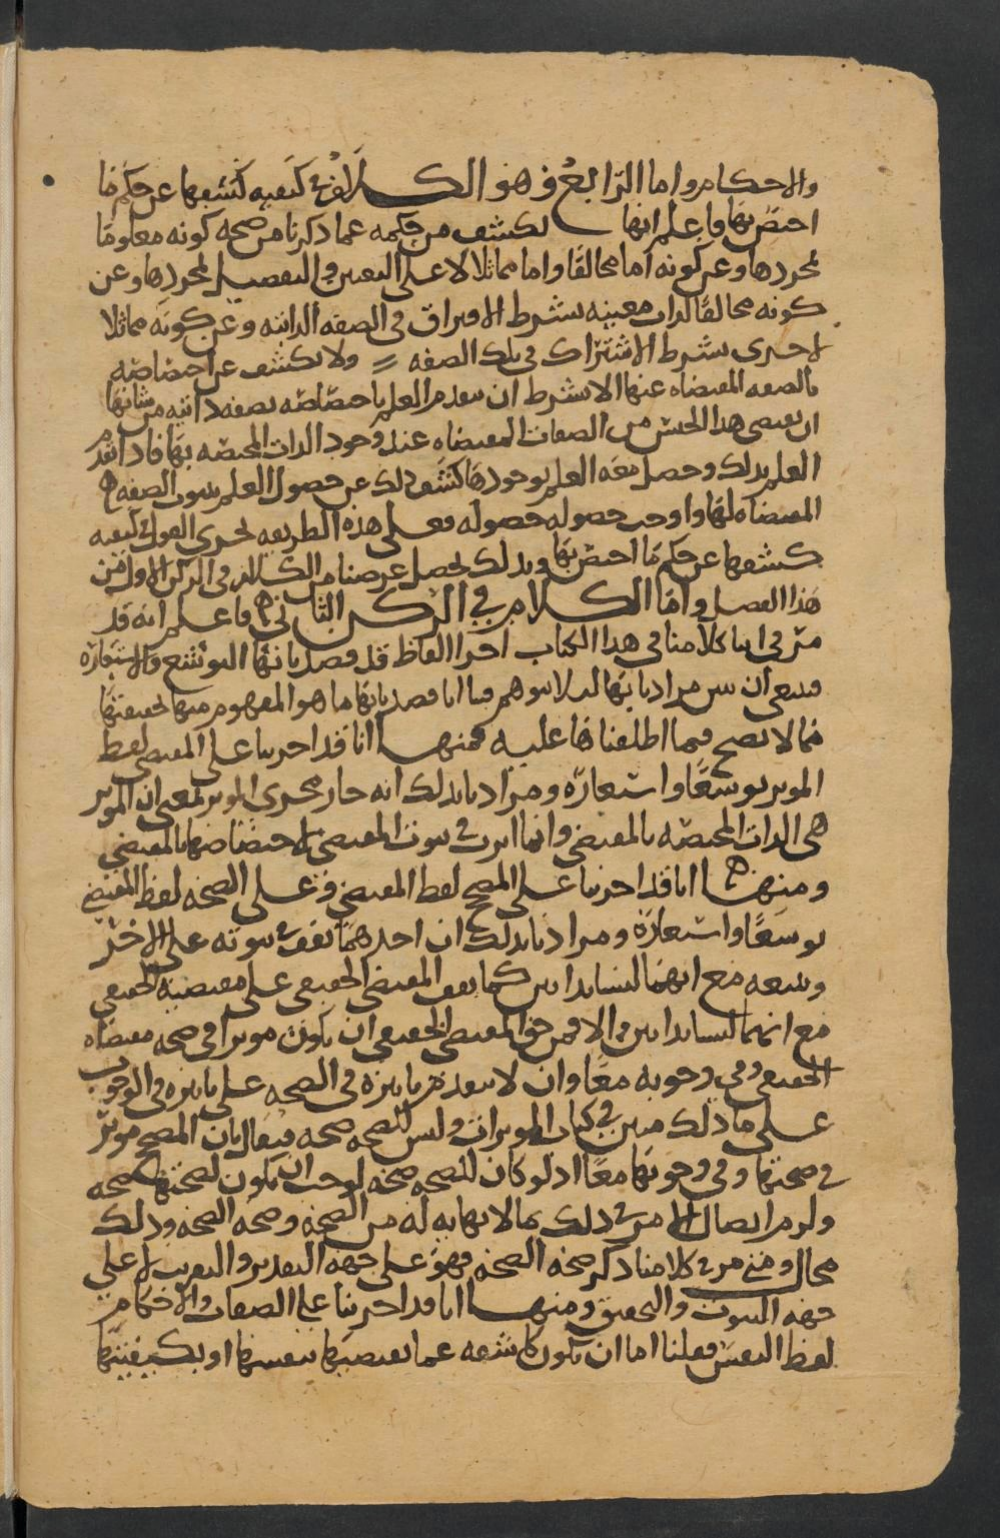 والاحكام واما الرابع وهو الكلام في كيفيه كشفها عن حكم ما
اختص بها فاعلم انها تكشف من حكمه عما ذكرنا من صحه كونه معلوما
لمجردها وعن كونه اما مخالفا واما مماثلا لا على التعيين والتفصيل لمجردها وعن
كونه مخالفا لذات معينه بشرط الافتراق في الصفه الذاتيه وعن كونه مماثلا
لاخرى بشرط الاشتراك في تلك الصفه ولا تكشف عن اختصاصه
بالصفه المقتضاه عنها الا بشرط ان يتقدم العلم باختصاصه بصفه ذاتيه من شانها
ان تقتضي هذا الجنس من الصفات المقتضاه عند وجود الذات المختصه بها فاذا تقدم
العلم بذلك وحصل معه العلم بوجودها كشف ذلك عن حصول العلم بثبوت الصفه
المقتضاه لها واوجب حصوله حصوله فعلى هذه الطريقه يجري القول في كيفيه
كشفها عن حكم ما اختص بها وبذلك يحصل غرضنا من الكلام في الركن الاول من
هذا الفصل واما الكلام في الركن الثاني فاعلم انه قد
مر في اثنا كلامنا في هذا الكتاب اجرا الفاظ قد قصدنا بها التوسع والاستعاره
فينبغي ان نبين مرادنا بها لئلا يتوهم فينا انا قصدنا بها ما هو المفهوم منها لحقيقتها
مما لا يصح فيما اطلقناها عليه فمنها انا قد اجرينا على المقتضي لفظ
الموثر توسعا واستعاره ومرادنا بذلك انه جار مجرى الموثر بمعنى ان الموثر
هي الذات المختصه بالمقتضي وانما اثرت في ثبوت المقتضى لاختصاصها بالمقتضي
ومنها انا قد اجرينا على المصحح لفظ المقتضي وعلى الصحه لفظ المقتضى
توسعا واستعاره ومرادنا بذلك ان احدهما يقف ثبوته على الاخر
ويتبعه مع انهما ليسا بذاتين كما يقف المقتضى الحقيقي على مقتضيه الحقيقي
مع انهما ليسا بذاتين والا فمن حق المقتضي الحقيقي ان يكون موثرا في صحه مقتضاه
الحقيقي وفي وجوبه معا وان لا يتقدم تاثيره في الصحه على تاثيره في الوجوب
على ما ذلك مبين في كتاب الموثرات وليس للصحه صحه فيقال بان المصحح موثر
في صحتها وفي وجوبها معا اذ لو كان للصحه صحه لوجب ان يكون لصحتها صحه
ولزم اتصال الامر في ذلك بما لا نهايه له من الصحه وصحه الصحه وذلك
محال ومتى مر في كلامنا ذكر صحه الصحه فهو على جهه التقدير والتقريب لا على
جهه الثبوت والتحقيق ومنها انا قد اجرينا على الصفات والاحكام
لفظ النفس فقلنا اما ان تكون كاشفه عما يقتضيها بنفسها او بكيفيتها